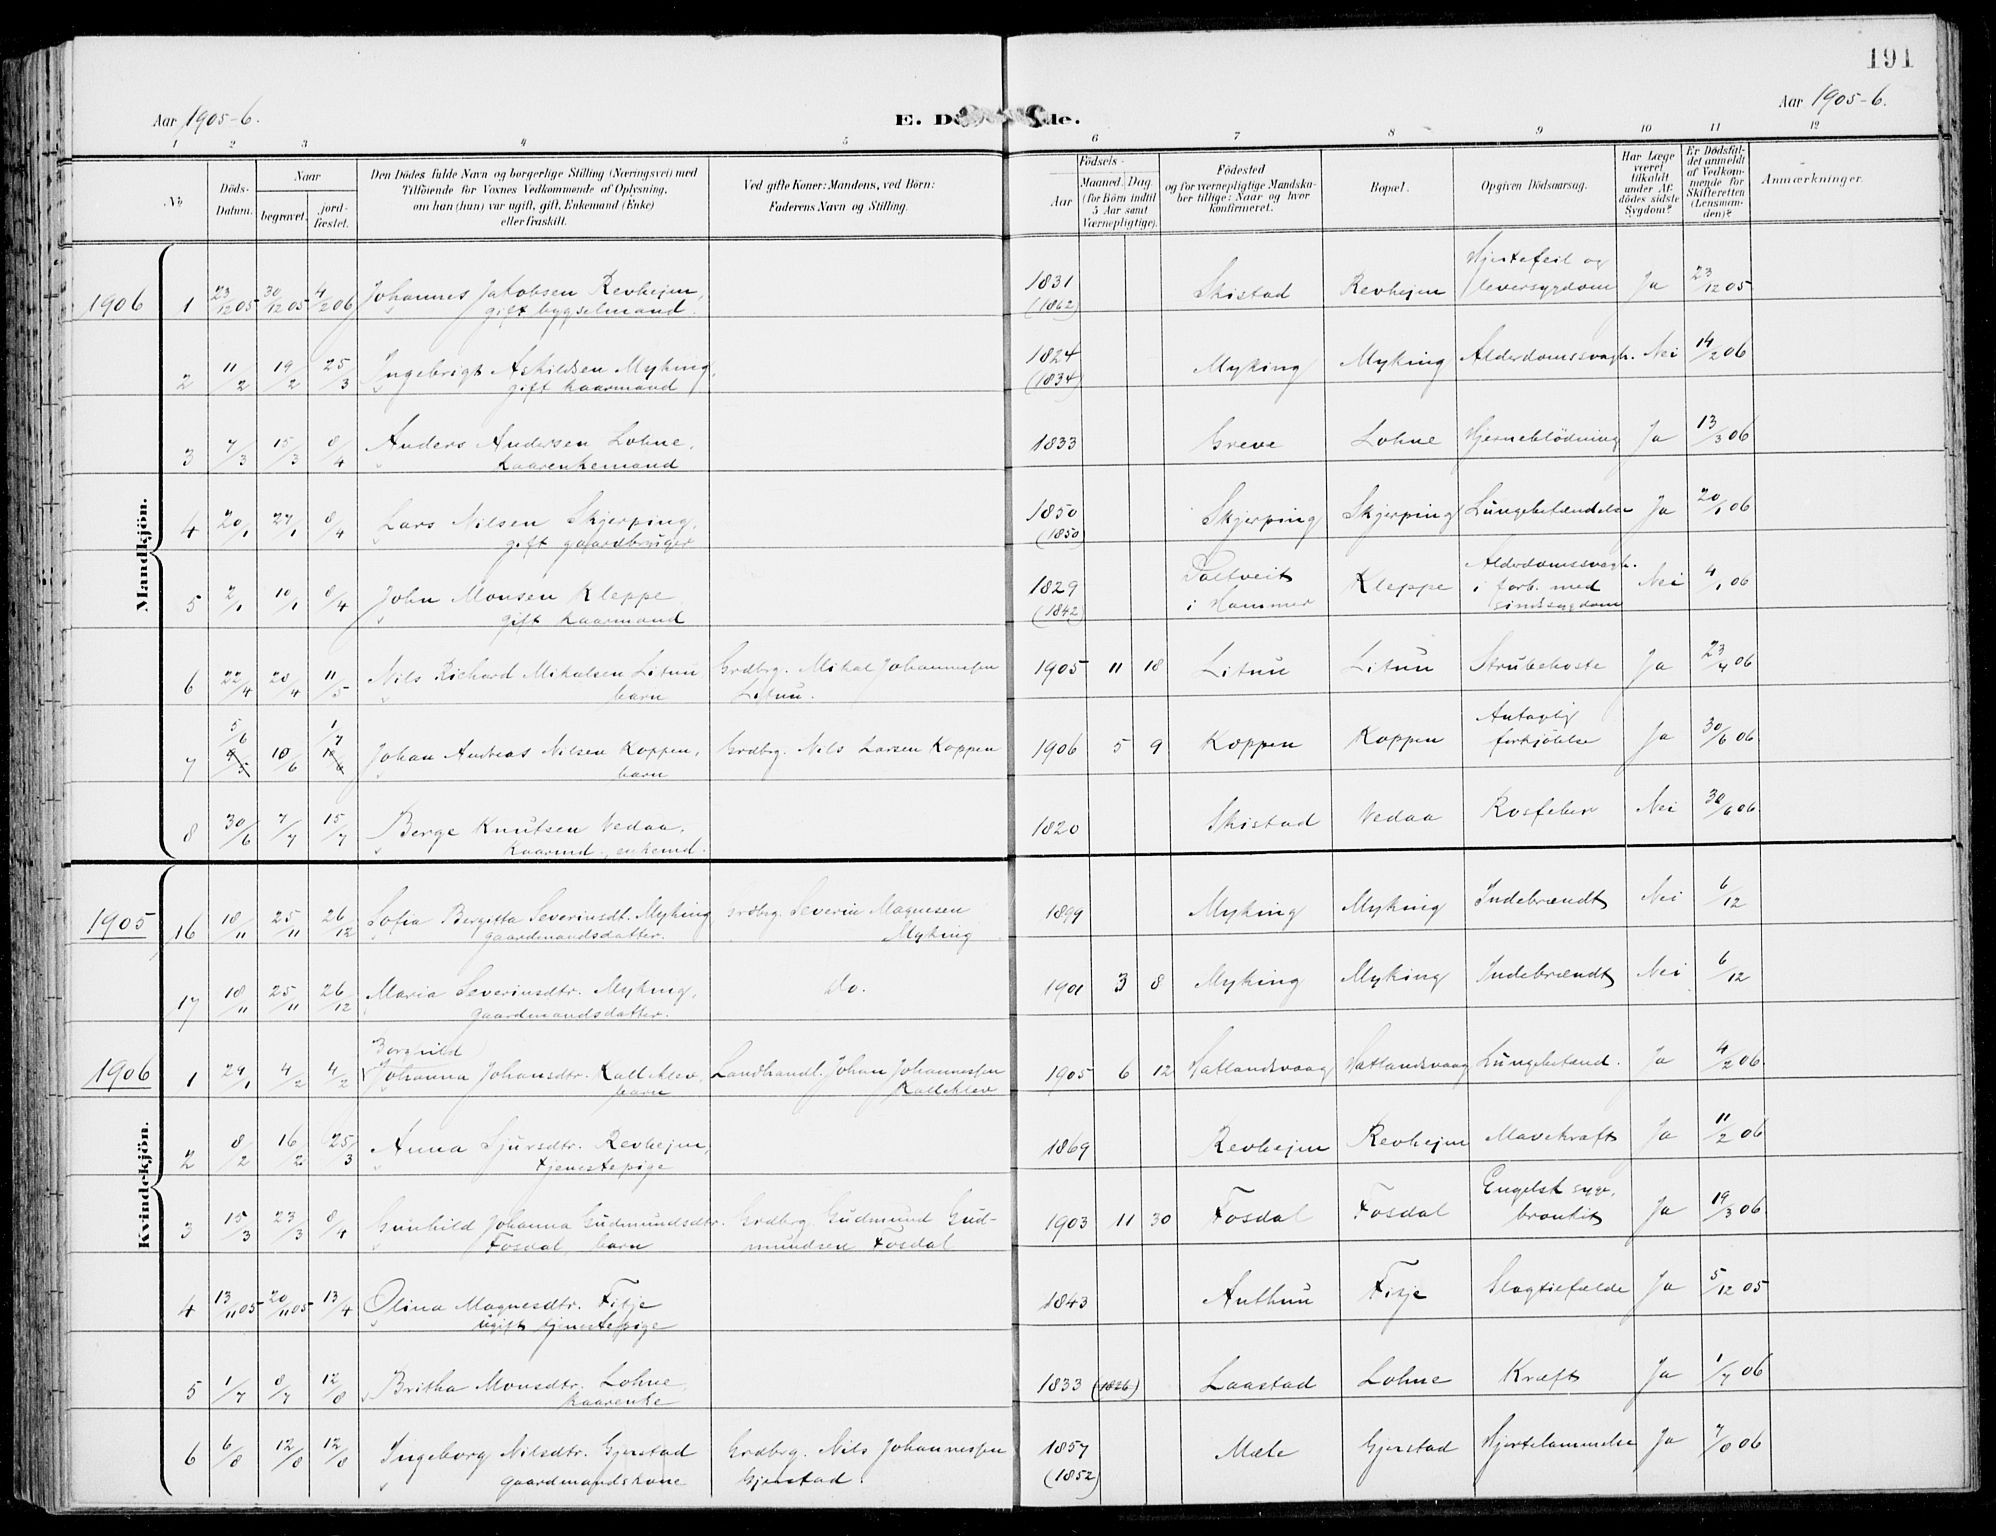 191
Aar 1905-6.
E. Dö de.
Aar 1905-6.
1 2 3 4 5 6 7 8 9 10 11 12
No
Döds-Datum.
Naar
begravet.
jord-fæstet.
Den Dödes fulde Navn og borgerlige Stilling (Næringsvei) med
Tilföiende for Voxnes Vedkommende af Oplysning,
om han (hun) var ugift, gift, Enkemand (Enke)
eller fraskilt.
Ved gifte Koner: Mandens, ved Börn:
Faderens Navn og Stilling.
Födsels-
Aar
Maaned. Dag.
(for Börn indtil
5 Aar samt
Værnepligtige).
Födested
og for værnepligtige Mandska-
ber tillige: Naar og hvor
konfirmeret.
Bopæl.
Opgiven Dödsaarsag.
Har Læge
været
tilkaldt
under Af-
dödes sidste
Sygdom?
Er Dödsfal-
det anmeldt
af Vedkom-
mende for
Skifteretten
(Lensman-
den)?
Anmærkninger.
Mandkjön.
1906 1 23/12 05 30/12 05 4/2 06 Johannes Jakobsen Revhejen, 1831 Skistad Revhejen Hjertefeil og Ja 23/12 05
gift bygselmand. (1862) leversygdom
2 11/2 19/2 25/3 Ingebrigt Askildsen Myking, 1824 Myking Myking Alderdomssvagh. Nei 14/2 06
gift kaarmand (1834)
3 7/3 15/3 8/4 Anders Andersen Lohne, 1833 Greve Lohne Hjerneblödning Ja 13/3 06
kaarenkemand
4 20/1 27/1 8/4 Lars Nilsen Skjerping, 1850 Skjerping Skjerping Lungebetændelse Ja 20/1 06
gift gaardbruger (1850)
5 2/1 10/1 8/4 John Monsen Kleppe, 1829 i Hammer Kleppe Alderdomssvagh. Nei 4/1 06
gift kaarmand (1842) i forb. med
sindssygdom
6 22/4 28/4 11/5 Nils Richard Mikalsen Litun Grdbrg. Mikal Johannessen 1905 11 18 Litun Litun Strubehoste Ja 23/4 06
barn Litun.
7 5/6 10/6 1/7 Johan Andreas Nilsen Koppen, Grdbrg. Nils Larsen Koppen 1906 5 9 Koppen Koppen Antaglig Ja 30/6 06
barn forkjölelse
8 30/6 7/7 15/7 Berge Knutsen Vedaa, 1820 Skistad Vedaa Rosfeber Nei 30/6 06
Kaarmd., enkemd.
Kvindekjön.
1905 16 18/11 25/11 26/12 Sofia Bergitta Severinsdt. Myking Grdbrg. Severin Magnesen 1899 Myking Myking Indebrændt Nei 6/12
gaardmandsdatter. Myking
17 18/11 25/11 26/12 Maria Severinsdtr. Myking, do. 1901 3 8 Myking Myking Indebrændt Nei 6/12
gaardmandsdatter.
Borghild
1906 1 29/1 4/2 4/2 Johanna Johansdtr. Kalleklev, Landhandl. Johan Johannessen 1905 6 12 Hatlandsvaag Hatlandsvaag Lungebetænd. Ja 4/2 06.
barn Kalleklev
2 8/2 16/2 25/3 Anna Sjursdtr. Revhejen, 1869 Revhejen Revhejen Mavekræft Ja 11/2 06
tjenestepige
3 15/3 23/3 8/4 Gunhild Johanna Gudmundsdtr. Grdbrg. Gudmund Gud- 1903 11 30 Fosdal Fosdal Engelsk syge, Ja 19/3 06
Fosdal, barn mundsen Fosdal bronkit
4 13/11 05 20/11 05 13/4 Olina Magnesdtr. Fitje 1843 Anthun Fitje Slagtilfælde Ja 5/12 05
ugift tjenestepige
5 1/7 8/7 12/8 Britha Monsdtr. Lohne, 1833 (1826) Laastad Lohne Kræft Ja 1/7 06
kaarenke
6 6/8 12/8 12/8 Ingeborg Nilsdtr. Gjerstad Grdbrg. Nils Johannessen 1857 Mæle Gjerstad Hjertelammelse Ja 7/8 06
gaardmandskone Gjerstad. (1852)